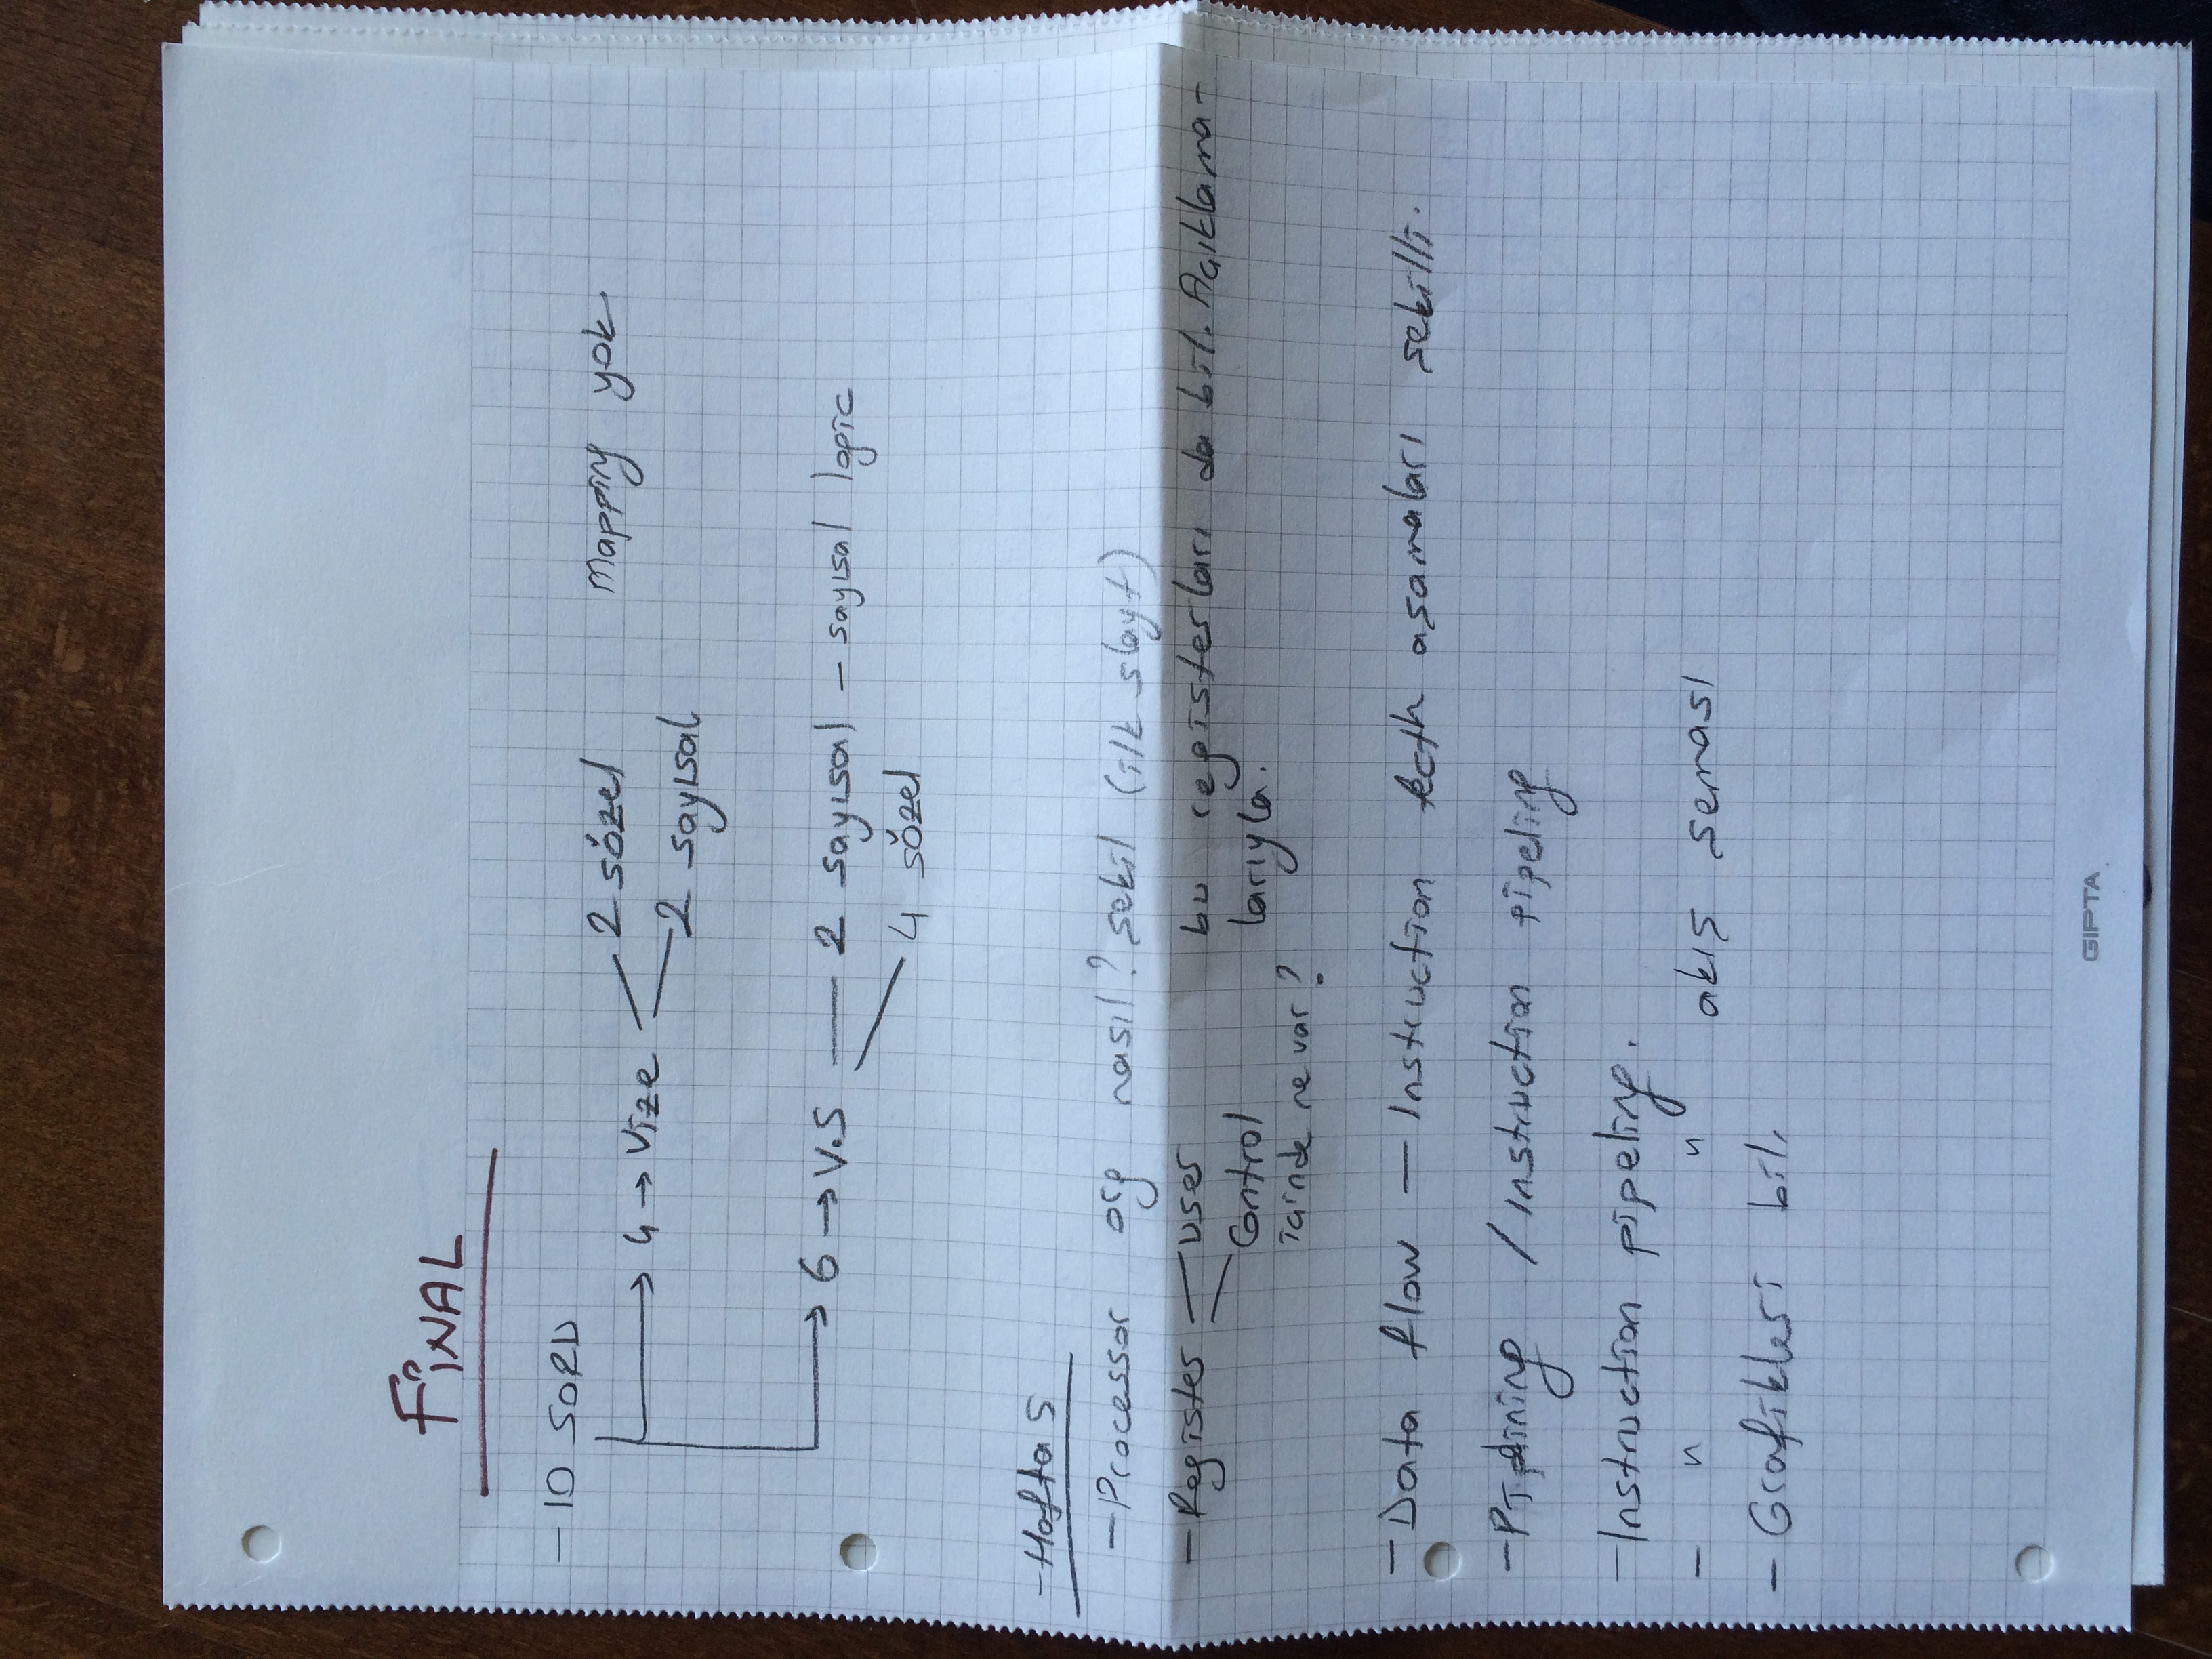 FİNAL
- 10 SORU
→ 4 → Vize
2 sözel
2 sayısal
Mapping yok
→ 6 → V.S — 2 sayısal - sayısal logic
4 sözel
- Hafta 5
- Processor org nasıl? şekil (ilk slayt)
- Register — User
Control
içinde ne var?
bu registerları da bil. Açıklama-
larıyla.
- Data flow — Instruction fecth aşamaları şekilli.
- Piplining / Instruction pipeling
- Instruction pipeling.
- " " akış şeması
- Grafikleri bil.
GIPTA